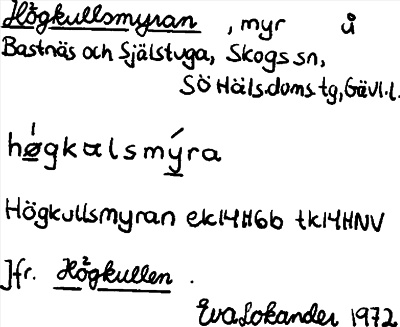 Högkullsmyran, myr å
Bastnäs och Själstuga, Skogs sn,
Sö Häls. doms. tg, Gävl. l.
høgkalsmýra
Högkullsmyran ek 14H6b tk 14HNV
Jfr. Högkullen.
Eva Lokander 1972